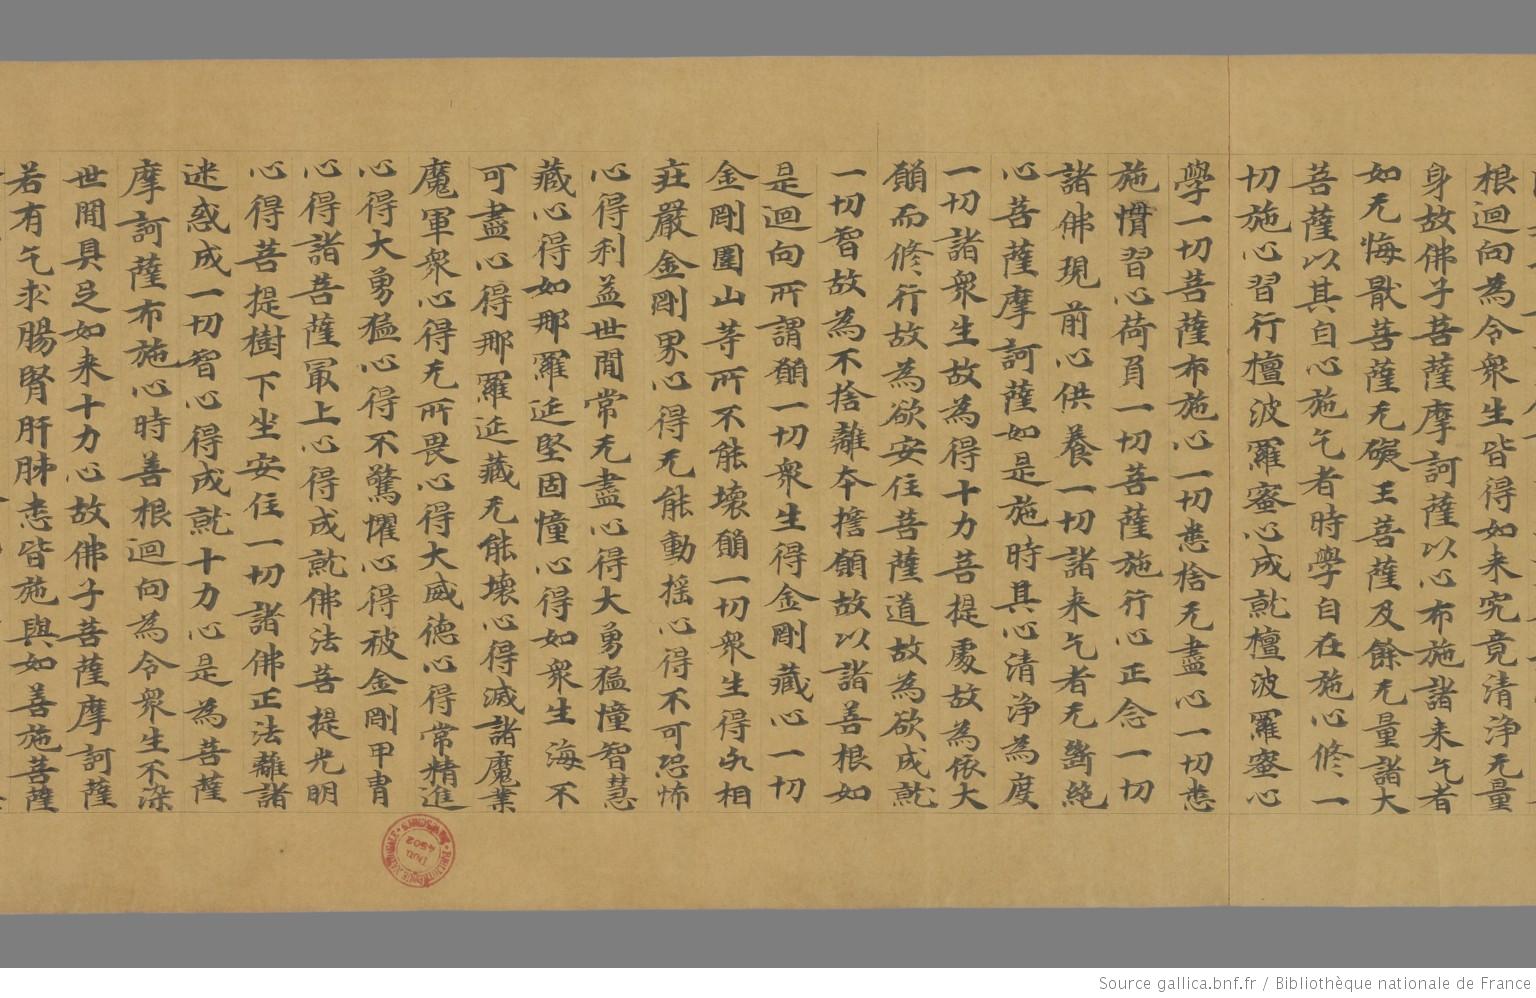 根迴向為令衆生皆得如来究竟清淨无量
身故佛子菩薩摩訶薩以心布施諸来乞者
如无悔猒菩薩无礙王菩薩及餘无量諸大
菩薩以其自心施乞者時學自在施心修一
切施心習行檀波羅蜜心成就檀波羅蜜心
學一切菩薩布施心一切悉捨无盡心一切悉
施慣習心荷負一切菩薩施行心正念一切
諸佛現前心供養一切諸来乞者无斷絶
心菩薩摩訶薩如是施時其心清淨為度
一切諸衆生故為得十力菩提處故為依大
願而修行故為欲安住菩薩道故為欲成就
一切智故為不捨離本擔願故以諸善根如
是迴向所謂願一切衆生得金剛藏心一切
金剛圍山等所不能壞願一切衆生得卐相
莊嚴金剛界心得无能動搖心得不可恐怖
心得利益世間常无盡心得大勇猛幢智慧
藏心得如那羅延堅固幢心得如衆生海不
可盡心得那羅延藏无能壞心得滅諸魔業
魔軍衆心得无所畏心得大威德心得常精進
心得大勇猛心得不驚懼心得被金剛甲胄
心得諸菩薩冣上心得成就佛法菩提光明
心得菩提樹下坐安住一切諸佛正法離諸
迷惑成一切智心得成就十力心是為菩薩
摩訶薩布施心時善根迴向為令衆生不染
世間具足如来十力心故佛子菩薩摩訶薩
若有乞求腸腎肝肺悉皆施與如善施菩薩
Source gallica.bnf.fr / Bibliothèque nationale de France